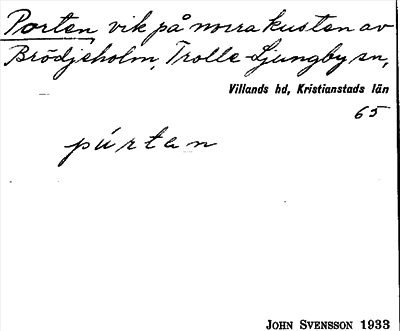 Porten, vik på norra kusten av
Brödjeholm, Trolle-Ljungby sn,
Villands hd, Kristianstads län
65
púrtan
JOHN SVENSSON 1933